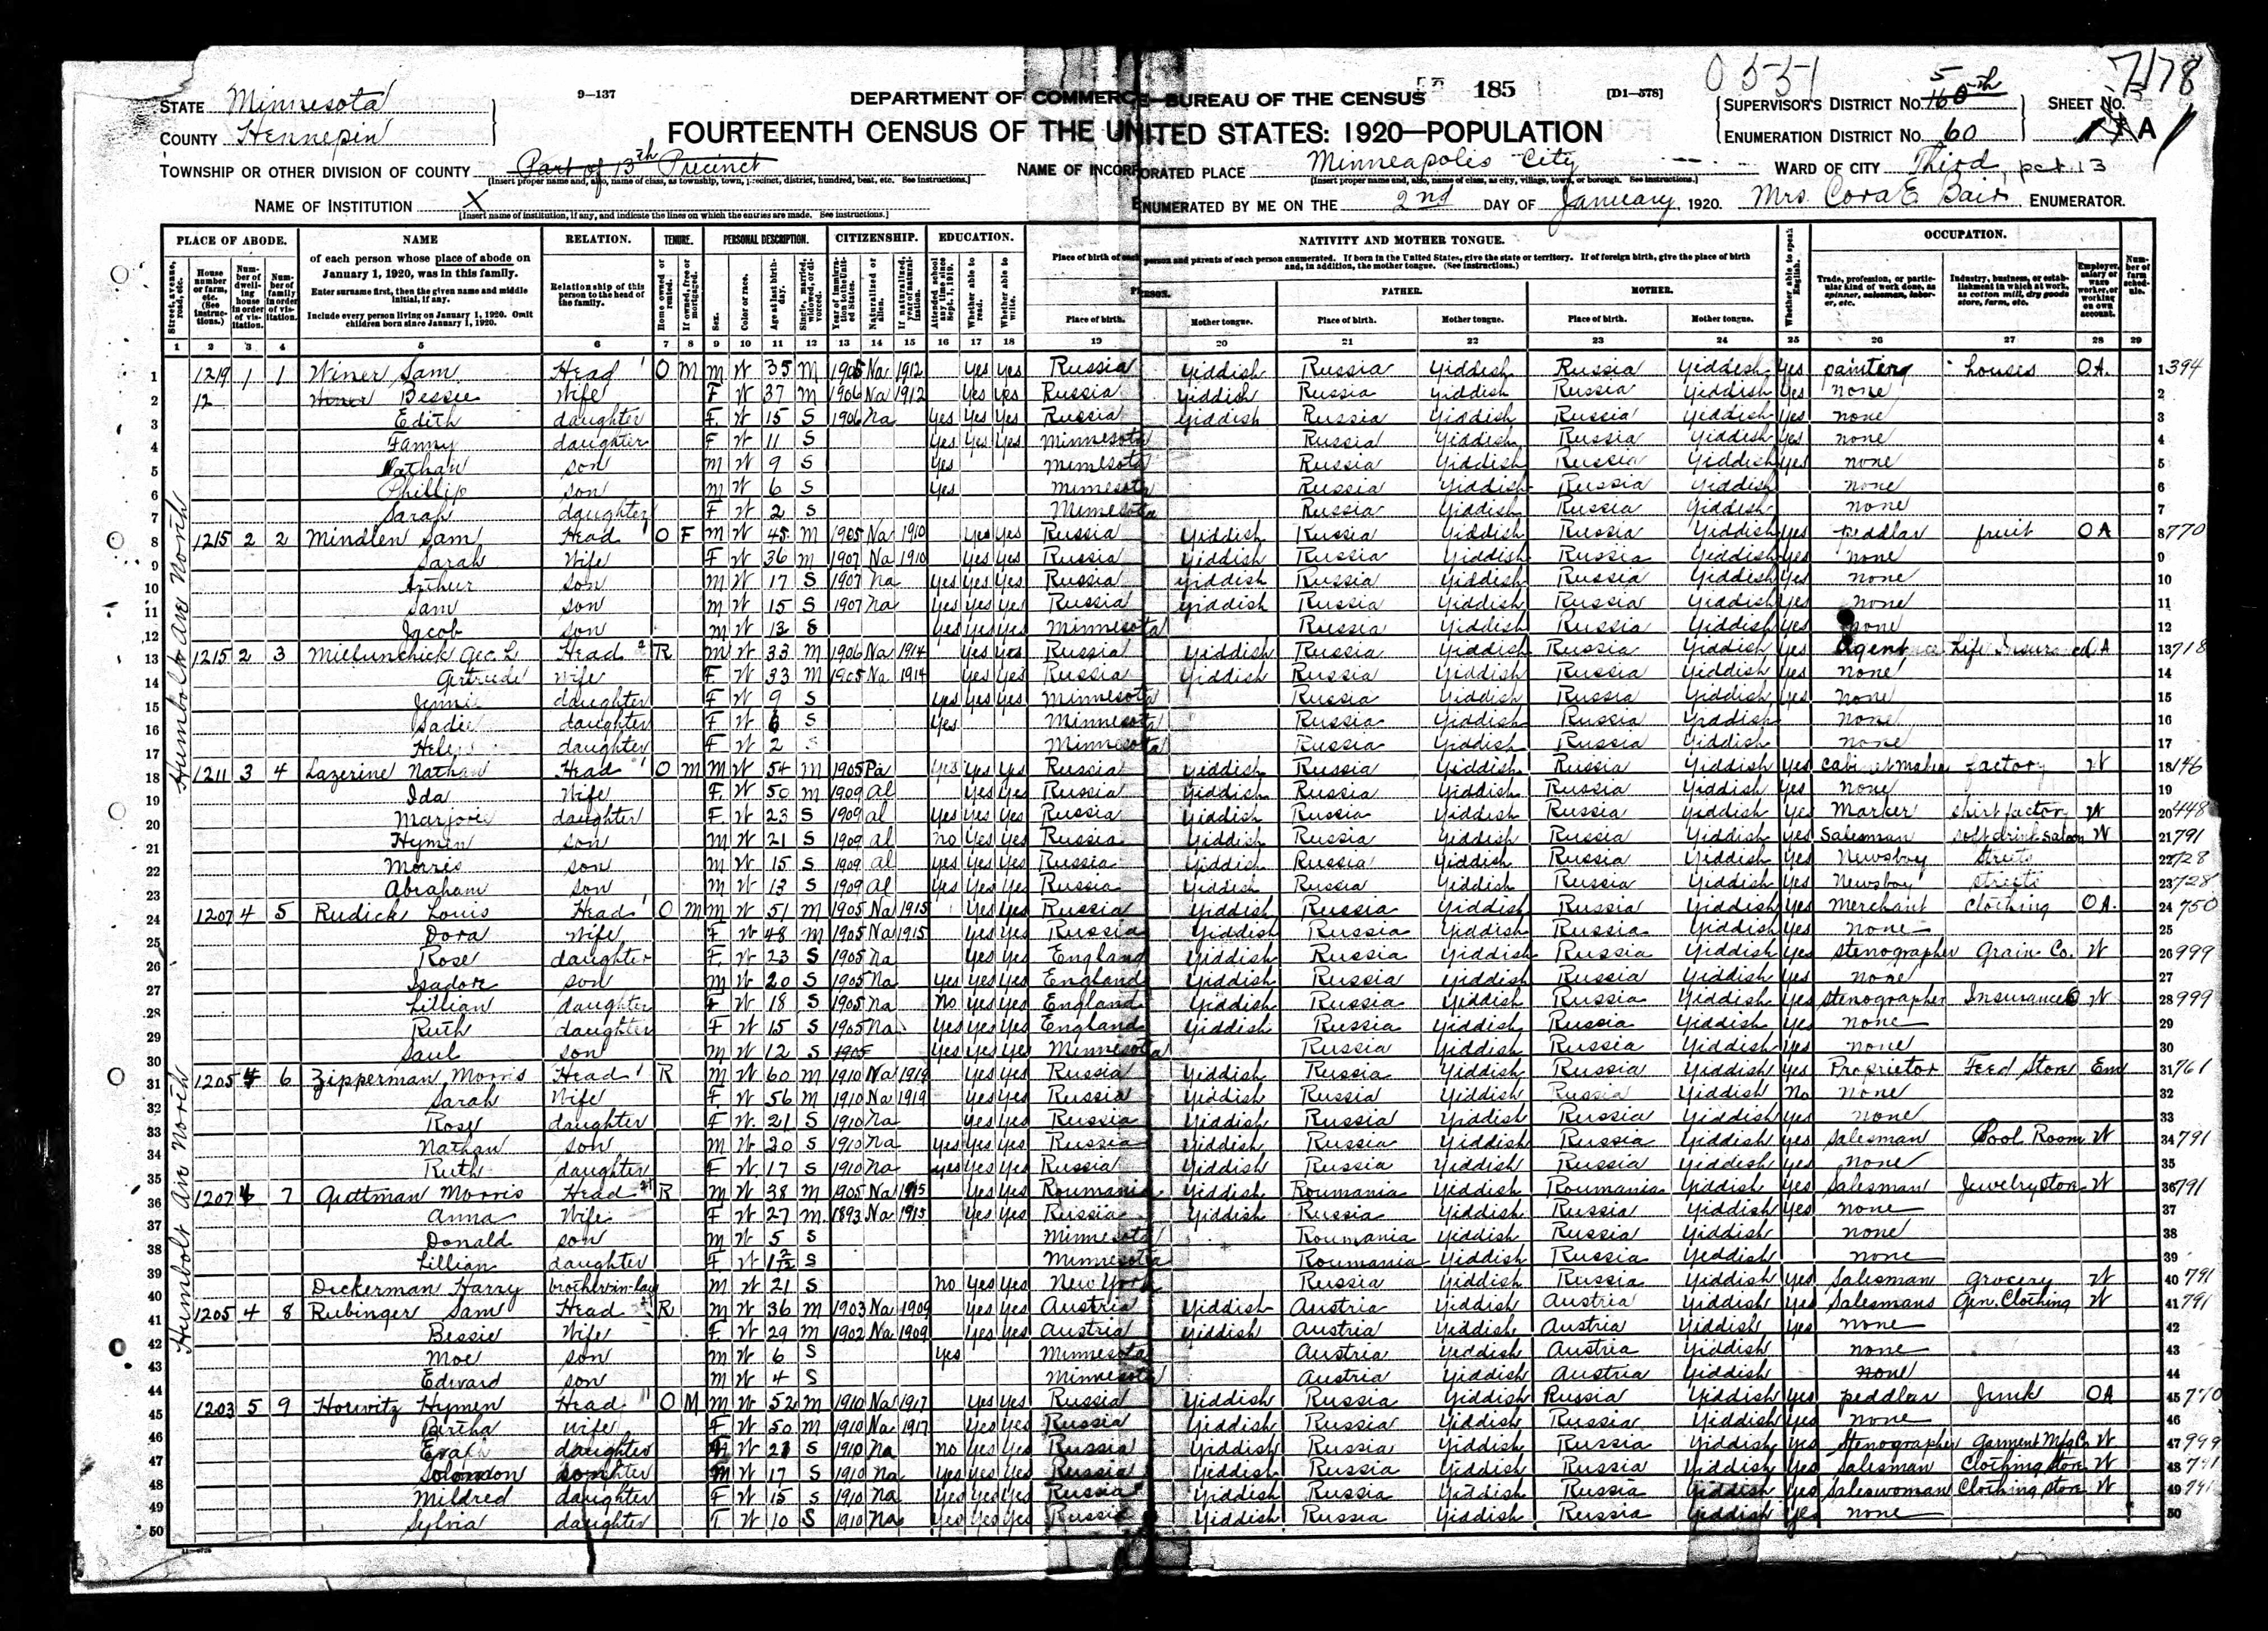 0551 7178
STATE Minnesota 9—137 DEPARTMENT OF COMMERCE—BUREAU OF THE CENSUS 185 [D1—578] SUPERVISOR'S DISTRICT No. 160 5th SHEET No.
COUNTY Hennepin FOURTEENTH CENSUS OF THE UNITED STATES: 1920—POPULATION ENUMERATION DISTRICT No. 60 1 A
TOWNSHIP OR OTHER DIVISION OF COUNTY Part of 13th Precinct NAME OF INCORPORATED PLACE Minneapolis City WARD OF CITY Third, pct 13
[Insert proper name and, also, name of class, as township, town, precinct, district, hundred, beat, etc. See instructions.] [Insert proper name and, also, name of class, as city, village, town, or borough. See instructions.]
NAME OF INSTITUTION X ENUMERATED BY ME ON THE 2nd DAY OF January, 1920. Mrs Cora E Bair ENUMERATOR.
[Insert name of institution, if any, and indicate the lines on which the entries are made. See instructions.]
PLACE OF ABODE. NAME RELATION. TENURE. PERSONAL DESCRIPTION. CITIZENSHIP. EDUCATION. NATIVITY AND MOTHER TONGUE. OCCUPATION.
of each person whose place of abode on January 1, 1920, was in this family.
Enter surname first, then the given name and middle initial, if any.
Include every person living on January 1, 1920. Omit children born since January 1, 1920.
Relationship of this person to the head of the family.
Place of birth of each person and parents of each person enumerated. If born in the United States, give the state or territory. If of foreign birth, give the place of birth and, in addition, the mother tongue. (See instructions.)
PERSON. FATHER. MOTHER.
Place of birth. Mother tongue. Place of birth. Mother tongue. Place of birth. Mother tongue.
1 2 3 4 5 6 7 8 9 10 11 12 13 14 15 16 17 18 19 20 21 22 23 24 25 26 27 28 29
Humboldt Ave North
1 1219 1 1 Winer Sam Head O M M W 35 M 1905 Na 1912 Yes Yes Russia Yiddish Russia Yiddish Russia Yiddish Yes painter houses OA. 1 394
2 12 Winer Bessie Wife F W 37 M 1906 Na 1912 Yes Yes Russia Yiddish Russia Yiddish Russia Yiddish Yes none 2
3 Edith daughter F W 15 S 1906 Na Yes Yes Yes Russia Yiddish Russia Yiddish Russia Yiddish Yes none 3
4 Fanny daughter F W 11 S Yes Yes Yes Minnesota Russia Yiddish Russia Yiddish Yes none 4
5 Nathan son M W 9 S Yes Minnesota Russia Yiddish Russia Yiddish Yes none 5
6 Phillip son M W 6 S Yes Minnesota Russia Yiddish Russia Yiddish none 6
7 Sarah daughter F W 2 S Minnesota Russia Yiddish Russia Yiddish none 7
8 1215 2 2 Mindlen Sam Head O F M W 45 M 1905 Na 1910 Yes Yes Russia Yiddish Russia Yiddish Russia Yiddish Yes peddlar fruit OA 8 770
9 Sarah Wife F W 36 M 1907 Na 1910 Yes Yes Russia Yiddish Russia Yiddish Russia Yiddish Yes none 9
10 Arthur son M W 17 S 1907 Na Yes Yes Yes Russia Yiddish Russia Yiddish Russia Yiddish Yes none 10
11 Sam son M W 15 S 1907 Na Yes Yes Yes Russia Yiddish Russia Yiddish Russia Yiddish Yes none 11
12 Jacob son M W 13 S Yes Yes Yes Minnesota Russia Yiddish Russia Yiddish Yes none 12
13 1215 2 3 Millunchick Geo. L Head 2 R M W 33 M 1906 Na 1914 Yes Yes Russia Yiddish Russia Yiddish Russia Yiddish Yes agent Life Insurance OA 13 718
14 Gertrude Wife F W 33 M 1905 Na 1914 Yes Yes Russia Yiddish Russia Yiddish Russia Yiddish Yes none 14
15 daughter F W 9 S Yes Yes Yes Minnesota Russia Yiddish Russia Yiddish Yes none 15
16 Sadie daughter F W 6 S Yes Minnesota Russia Yiddish Russia Yiddish none 16
17 daughter F W 2 S Minnesota Russia Yiddish Russia Yiddish none 17
18 1211 3 4 Lazerine Nathan Head O M M W 54 M 1905 Pa Yes Yes Yes Russia Yiddish Russia Yiddish Russia Yiddish Yes cabinetmaker factory W 18 146
19 Ida Wife F W 50 M 1909 Al Yes Yes Russia Yiddish Russia Yiddish Russia Yiddish Yes none 19
20 Marjorie daughter F W 23 S 1909 al Yes Yes Yes Russia Yiddish Russia Yiddish Russia Yiddish Yes Marker shirt factory W 20 448
21 Hymen son M W 21 S 1909 al no Yes Yes Russia Yiddish Russia Yiddish Russia Yiddish Yes Salesman soft drink saloon W 21 791
22 Morris son M W 15 S 1909 Al Yes Yes Yes Russia Yiddish Russia Yiddish Russia Yiddish Yes Newsboy streets 22 728
23 Abraham son M W 13 S 1909 Al Yes Yes Yes Russia Yiddish Russia Yiddish Russia Yiddish Yes Newsboy streets 23 728
24 1207 4 5 Rudick Louis Head O M M W 51 M 1905 Na 1915 Yes Yes Russia Yiddish Russia Yiddish Russia Yiddish Yes Merchant Clothing OA. 24 750
25 Dora Wife F W 48 M 1905 Na 1915 Yes Yes Russia Yiddish Russia Yiddish Russia Yiddish Yes none 25
26 Rose daughter F W 23 S 1905 Na Yes Yes England Yiddish Russia Yiddish Russia Yiddish Yes stenographer Grain Co. W 26 999
27 Isadore son M W 20 S 1905 Na Yes Yes Yes England Yiddish Russia Yiddish Russia Yiddish Yes none 27
28 Lillian daughter F W 18 S 1905 Na No Yes Yes England Yiddish Russia Yiddish Russia Yiddish Yes stenographer Insurance W 28 999
29 Ruth daughter F W 15 S 1905 Na Yes Yes Yes England Yiddish Russia Yiddish Russia Yiddish Yes none 29
30 Saul son M W 12 S 1905 Yes Yes Yes Minnesota Russia Yiddish Russia Yiddish Yes none 30
Humbolt Ave North
31 1205 4 6 Zipperman Morris Head R M W 60 M 1910 Na 1919 Yes Yes Russia Yiddish Russia Yiddish Russia Yiddish Yes Proprietor Feed Store Em 31 761
32 Sarah Wife F W 56 M 1910 Na 1919 Yes Yes Russia Yiddish Russia Yiddish Russia Yiddish No none 32
33 Rose daughter F W 21 S 1910 Na Yes Yes Russia Yiddish Russia Yiddish Russia Yiddish Yes none 33
34 Nathan son M W 20 S 1910 Na Yes Yes Yes Russia Yiddish Russia Yiddish Russia Yiddish Yes Salesman Pool Room W 34 791
35 Ruth daughter F W 17 S 1910 Na Yes Yes Yes Russia Yiddish Russia Yiddish Russia Yiddish Yes none 35
36 1207 4 7 Guttman Morris Head R M W 38 M 1905 Na 1915 Yes Yes Roumania Yiddish Roumania Yiddish Roumania Yiddish Yes Salesman Jewelry Store W 36 791
37 Anna Wife F W 27 M 1893 Na 1915 Yes Yes Russia Yiddish Russia Yiddish Russia Yiddish Yes none 37
38 Donald son M W 5 S Minnesota Roumania Yiddish Russia Yiddish none 38
39 Lillian daughter F W 1 2/12 S Minnesota Roumania Yiddish Russia Yiddish none 39
40 Dickerman Harry brother-in-law M W 21 S no Yes Yes New York Russia Yiddish Russia Yiddish Yes Salesman Grocery W 40 791
41 1205 4 8 Rubinger Sam Head R M W 36 M 1903 Na 1909 Yes Yes Austria Yiddish Austria Yiddish Austria Yiddish Yes Salesmans Gen. Clothing W 41 791
42 Bessie Wife F W 29 M 1902 Na 1909 Yes Yes Austria Yiddish Austria Yiddish Austria Yiddish Yes none 42
43 Moe son M W 6 S Yes Minnesota Austria Yiddish Austria Yiddish none 43
44 Edward son M W 4 S Minnesota Austria Yiddish Austria Yiddish none 44
45 1203 5 9 Horwitz Hymen Head O M M W 52 M 1910 Na 1917 Yes Yes Russia Yiddish Russia Yiddish Russia Yiddish Yes peddlar Junk OA 45 770
46 Bertha Wife F W 50 M 1910 Na 1917 Yes Yes Russia Yiddish Russia Yiddish Russia Yiddish Yes none 46
47 daughter F W 21 S 1910 Na no Yes Yes Russia Yiddish Russia Yiddish Russia Yiddish Yes Stenographer Garment Mfg Co W 47 999
48 Solomon son M W 17 S 1910 Na Yes Yes Yes Russia Yiddish Russia Yiddish Russia Yiddish Yes Salesman Clothing Store W 48 791
49 Mildred daughter F W 15 S 1910 Na Yes Yes Yes Russia Yiddish Russia Yiddish Russia Yiddish Yes Saleswoman Clothing Store W 49 791
50 Sylvia daughter F W 10 S 1910 Na Yes Yes Yes Russia Yiddish Russia Yiddish Russia Yiddish Yes none 50